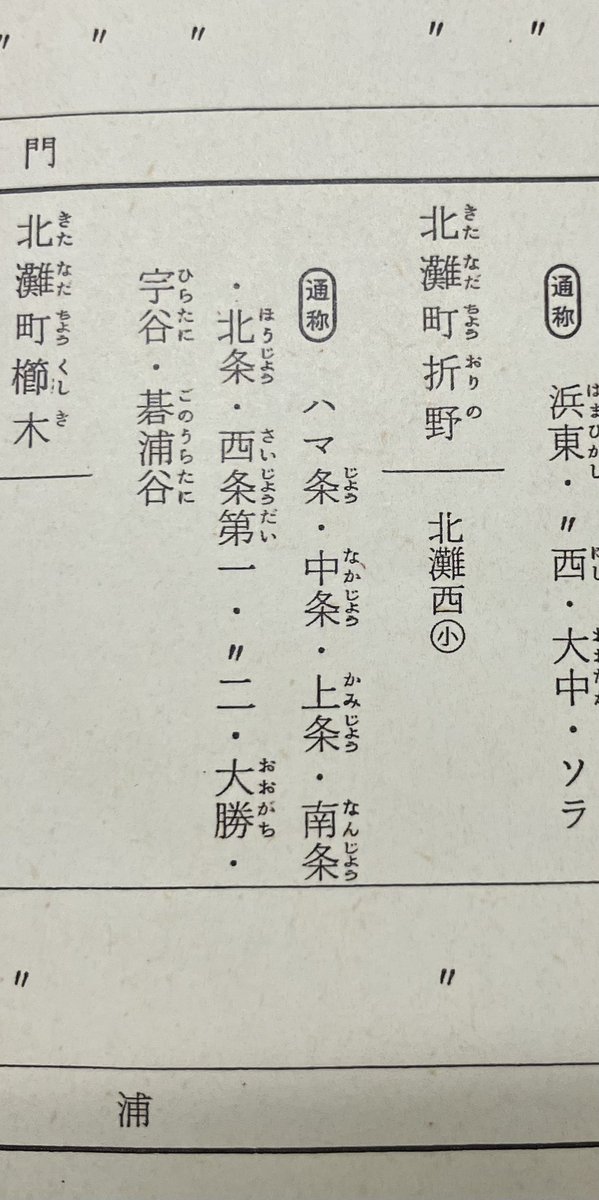 〃 〃 〃 〃 〃
門
通称 浜東・〃西・大中・ソラ
はまひがし にし
北灘町折野 北灘西小
きたなだちょうおりの
通称 ハマ条・中条・上条・南条
じょう なかじょう かみじょう なんじょう
・北条・西条第一・〃二・大勝・
ほうじょう さいじょうだい おおがち
宇谷・碁浦谷
ひらたに ごのうらたに
北灘町櫛木
きたなだちょうくしき
〃 〃
浦